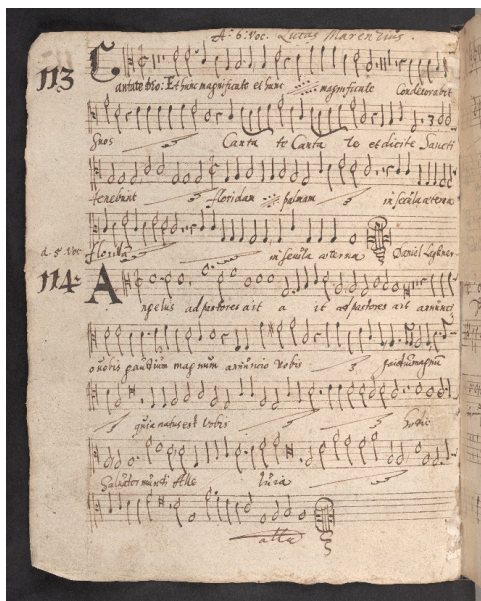 A. 6. Voc. Lucas Marenzius.
113
Cantate dño: Et hunc magnificate et hunc magnificate Condecorabit
Suos Canta te Canta te et dicite Sancti
tenebunt floridam palmam in secula aeterna
florida in secula aeterna Daniel
a. 5. Voc.
114
Angelus ad pastores ait a it ad pastores ait annunci
o vobis gaudium magnum annuncio vobis gaudiu magnu
quia natus est vobis hodie
Salvator mundi Alle luia
alla